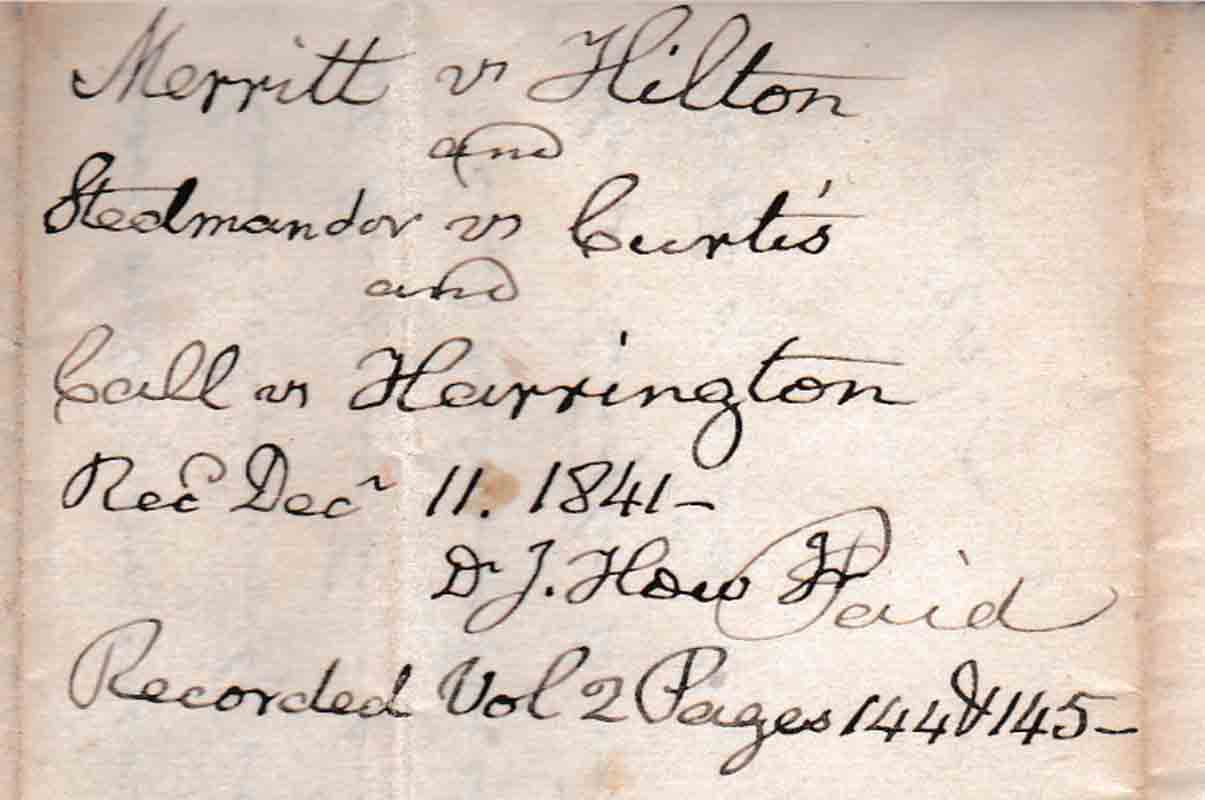 Merritt vs Hilton
and
Stedmandor vs Curtis
and
Call vs Harrington
Recd Decr 11. 1841-
Dr J. How Paid
Recorded Vol 2 Pages 144 & 145-